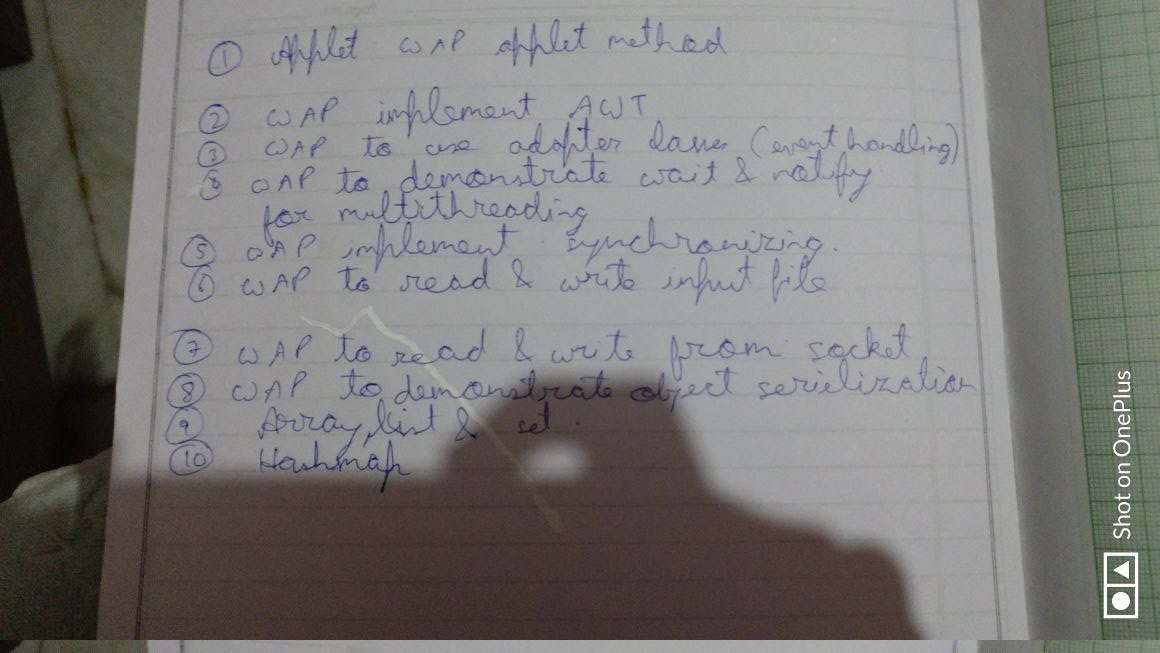 ① Applet WAP applet method
② WAP implement AWT
③ WAP to use adapter classes (event handling)
④ WAP to demonstrate wait & notify
for multithreading
⑤ WAP implement synchronizing.
⑥ WAP to read & write input file
⑦ WAP to read & write from socket
⑧ WAP to demonstrate object serielization
⑨ Array, list & set.
⑩ Hashmap
Shot on OnePlus